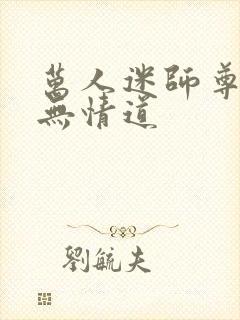 萬人迷師尊
無情道
劉毓夫